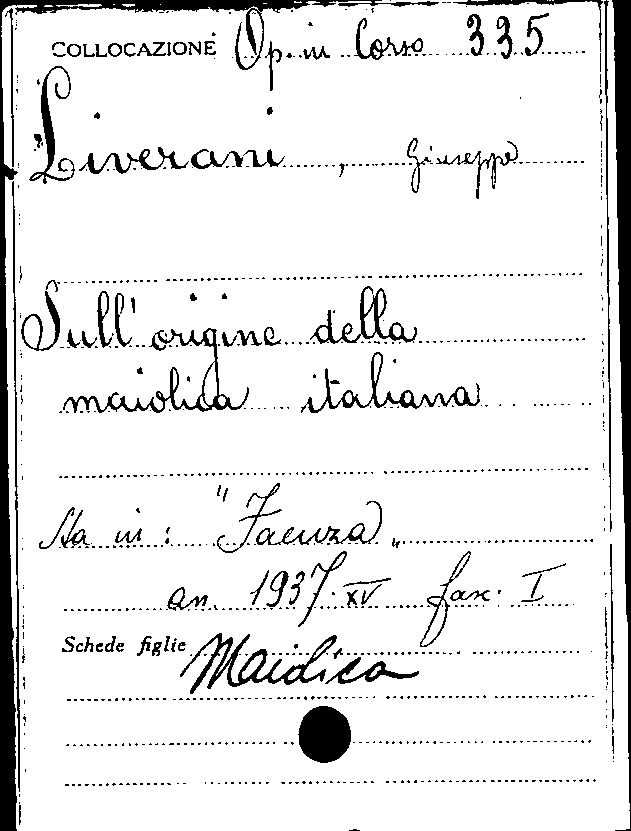 COLLOCAZIONE Op. in Corso 335
Liverani, Giuseppe
Sull'origine della
maiolica italiana
Sta in: "Faenza„
an. 1937-XV fasc. I
Schede figlie Maiolica